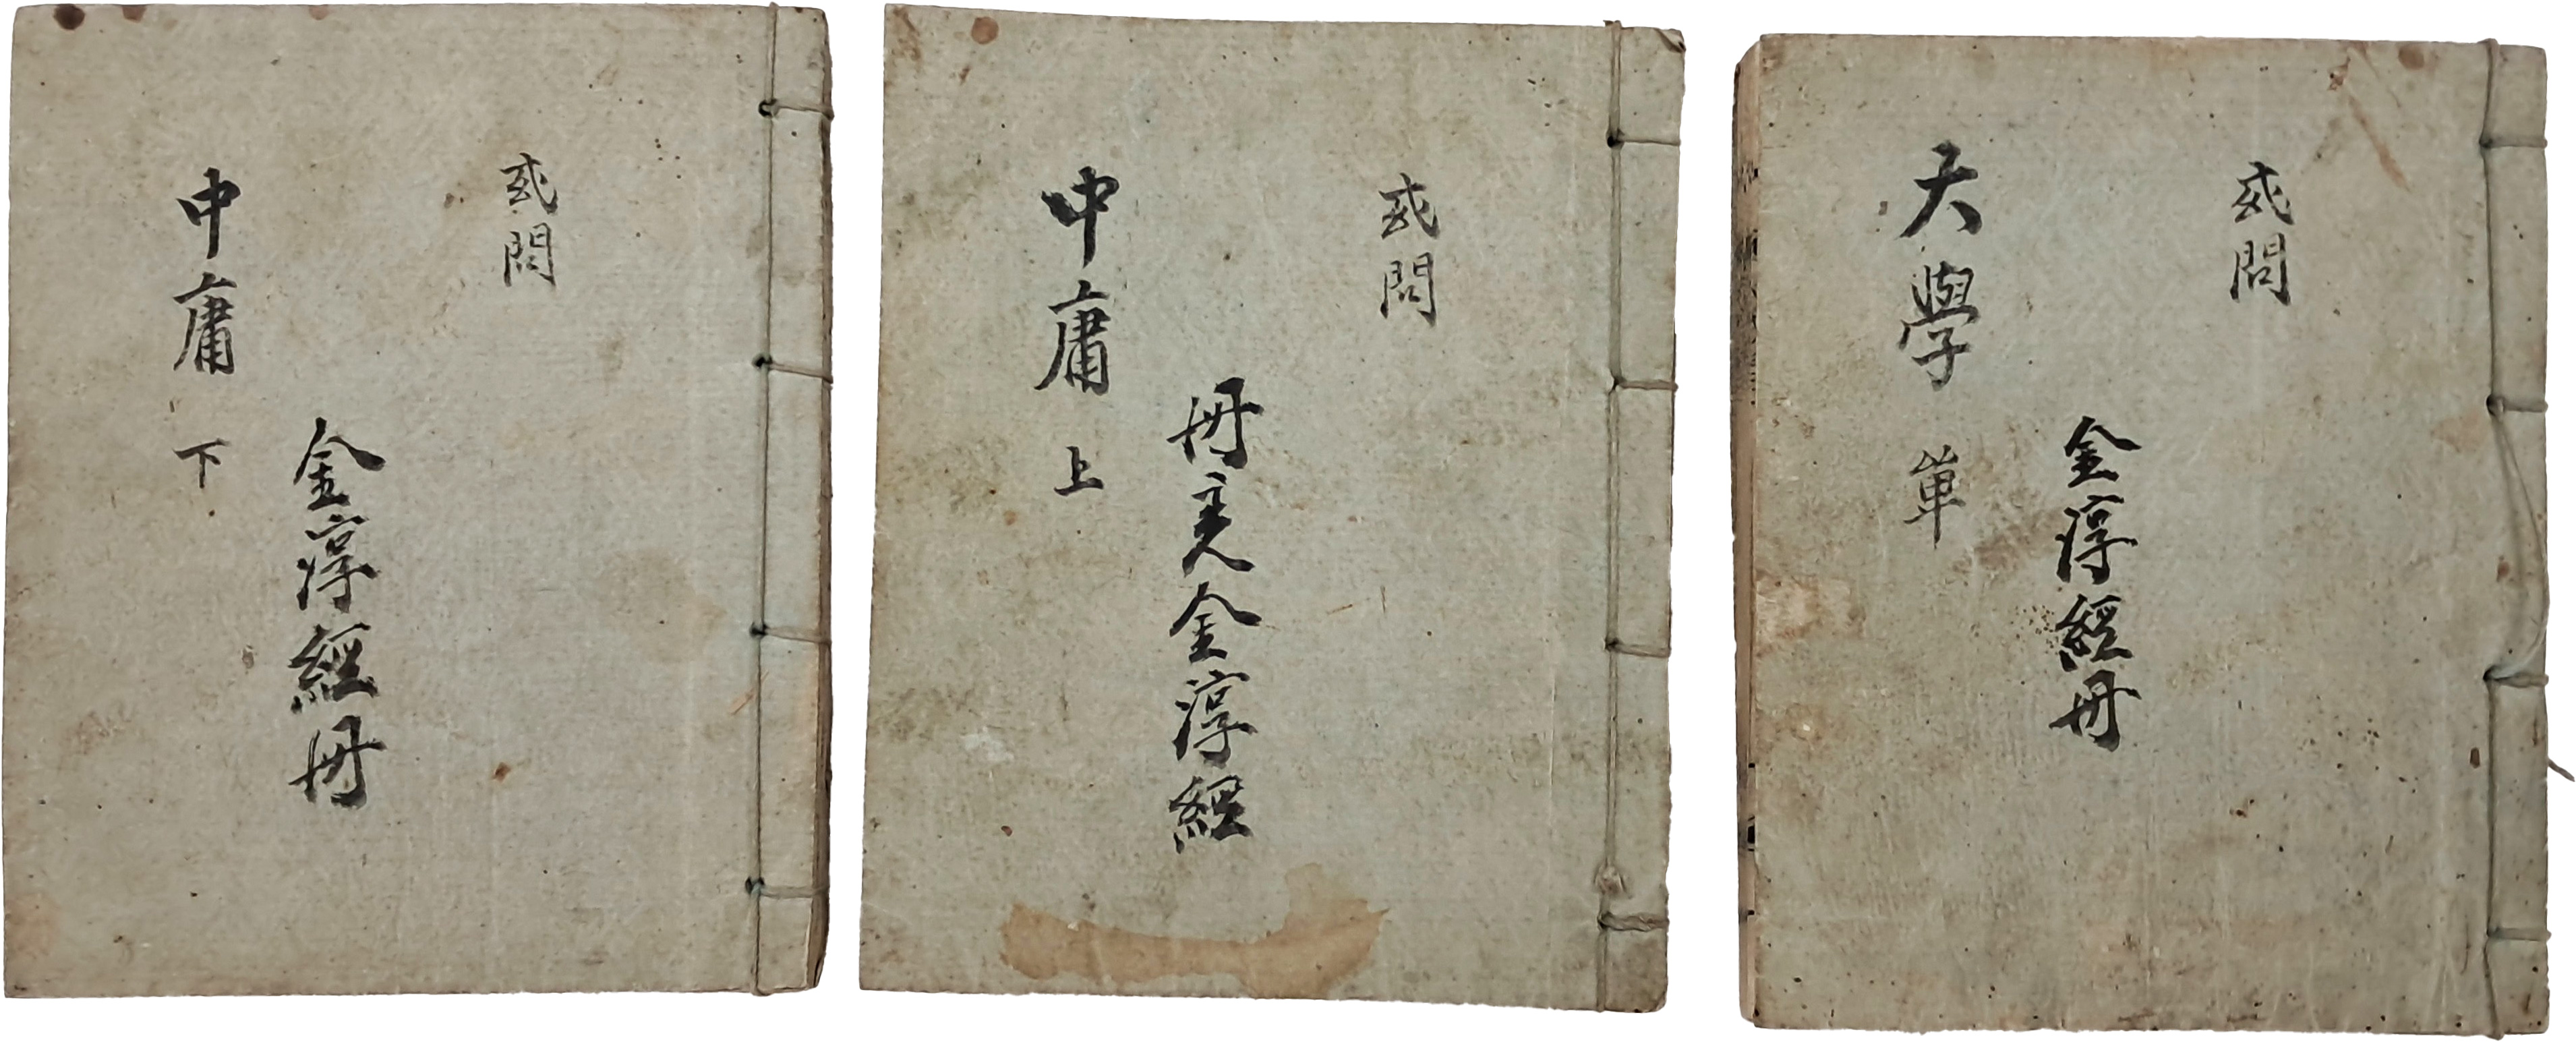 或問
金淳經冊
大學 單
或問
冊主人金淳經
中庸 上
或問
金淳經冊
中庸 下